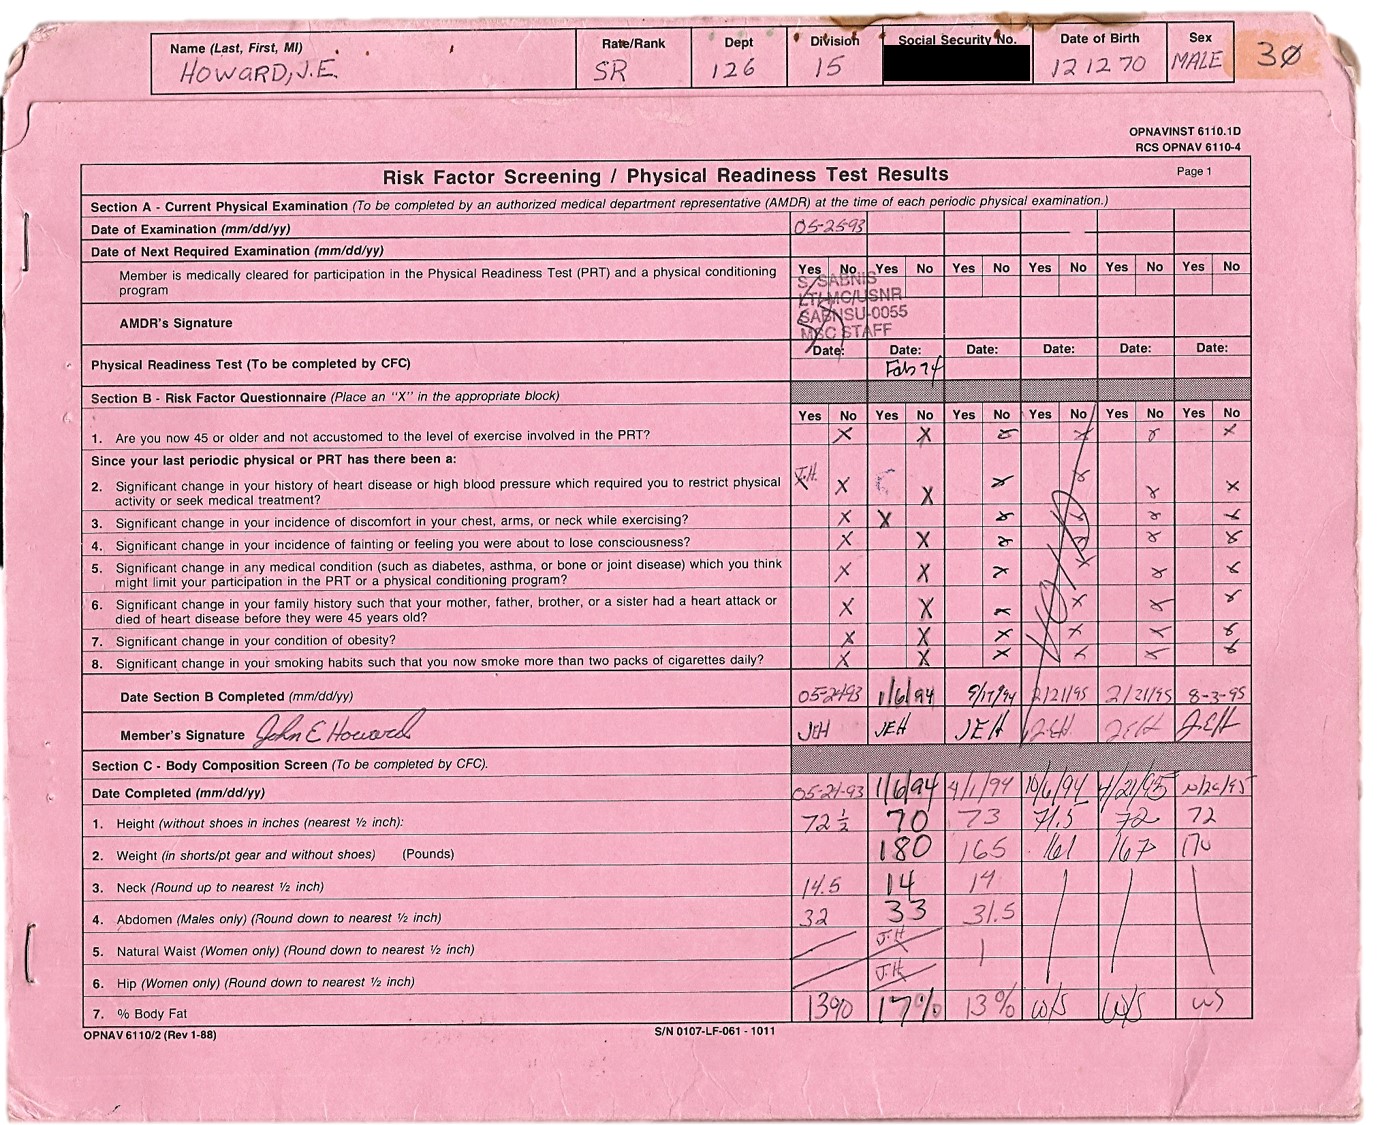 Name (Last, First, MI) Rate/Rank Dept Division Social Security No. Date of Birth Sex
HOWARD, J.E. SR 126 15 12 12 70 MALE 30
OPNAVINST 6110.1D
RCS OPNAV 6110-4
Risk Factor Screening / Physical Readiness Test Results Page 1
Section A - Current Physical Examination (To be completed by an authorized medical department representative (AMDR) at the time of each periodic physical examination.)
Date of Examination (mm/dd/yy) 05-25-93
Date of Next Required Examination (mm/dd/yy)
Member is medically cleared for participation in the Physical Readiness Test (PRT) and a physical conditioning
program
Yes No Yes No Yes No Yes No Yes No Yes No
S. SABNIS
LT/MC/USNR
SABNSU-0055
MSC STAFF
AMDR's Signature
Physical Readiness Test (To be completed by CFC) Date: Date: Date: Date: Date: Date:
Feb 94
Section B - Risk Factor Questionnaire (Place an "X" in the appropriate block)
Yes No Yes No Yes No Yes No Yes No Yes No
1. Are you now 45 or older and not accustomed to the level of exercise involved in the PRT? X X X X X X
Since your last periodic physical or PRT has there been a:
2. Significant change in your history of heart disease or high blood pressure which required you to restrict physical
activity or seek medical treatment? J.H. X X X X X X X
3. Significant change in your incidence of discomfort in your chest, arms, or neck while exercising? X X X X X X
4. Significant change in your incidence of fainting or feeling you were about to lose consciousness? X X X X X X
5. Significant change in any medical condition (such as diabetes, asthma, or bone or joint disease) which you think
might limit your participation in the PRT or a physical conditioning program? X X X X X X
6. Significant change in your family history such that your mother, father, brother, or a sister had a heart attack or
died of heart disease before they were 45 years old? X X X X X X
7. Significant change in your condition of obesity? X X X X X X
8. Significant change in your smoking habits such that you now smoke more than two packs of cigarettes daily? X X X X X X
Date Section B Completed (mm/dd/yy) 05-24-93 1/6/94 9/17/94 2/21/95 2/21/95 8-3-95
Member's Signature John E Howard JEH JEH JEH JEH JEH JEH
Section C - Body Composition Screen (To be completed by CFC).
Date Completed (mm/dd/yy) 05-24-93 1/6/94 4/1/94 10/6/94 4/21/95 10/26/95
1. Height (without shoes in inches (nearest ½ inch): 72 ½ 70 73 71.5 72 72
2. Weight (in shorts/pt gear and without shoes) (Pounds) 180 165 161 167 170
3. Neck (Round up to nearest ½ inch) 14.5 14 14
4. Abdomen (Males only) (Round down to nearest ½ inch) 32 33 31.5
5. Natural Waist (Women only) (Round down to nearest ½ inch) J.H
6. Hip (Women only) (Round down to nearest ½ inch) J.H
7. % Body Fat 13% 17% 13% W/S W/S WS
OPNAV 6110/2 (Rev 1-88) S/N 0107-LF-061-1011